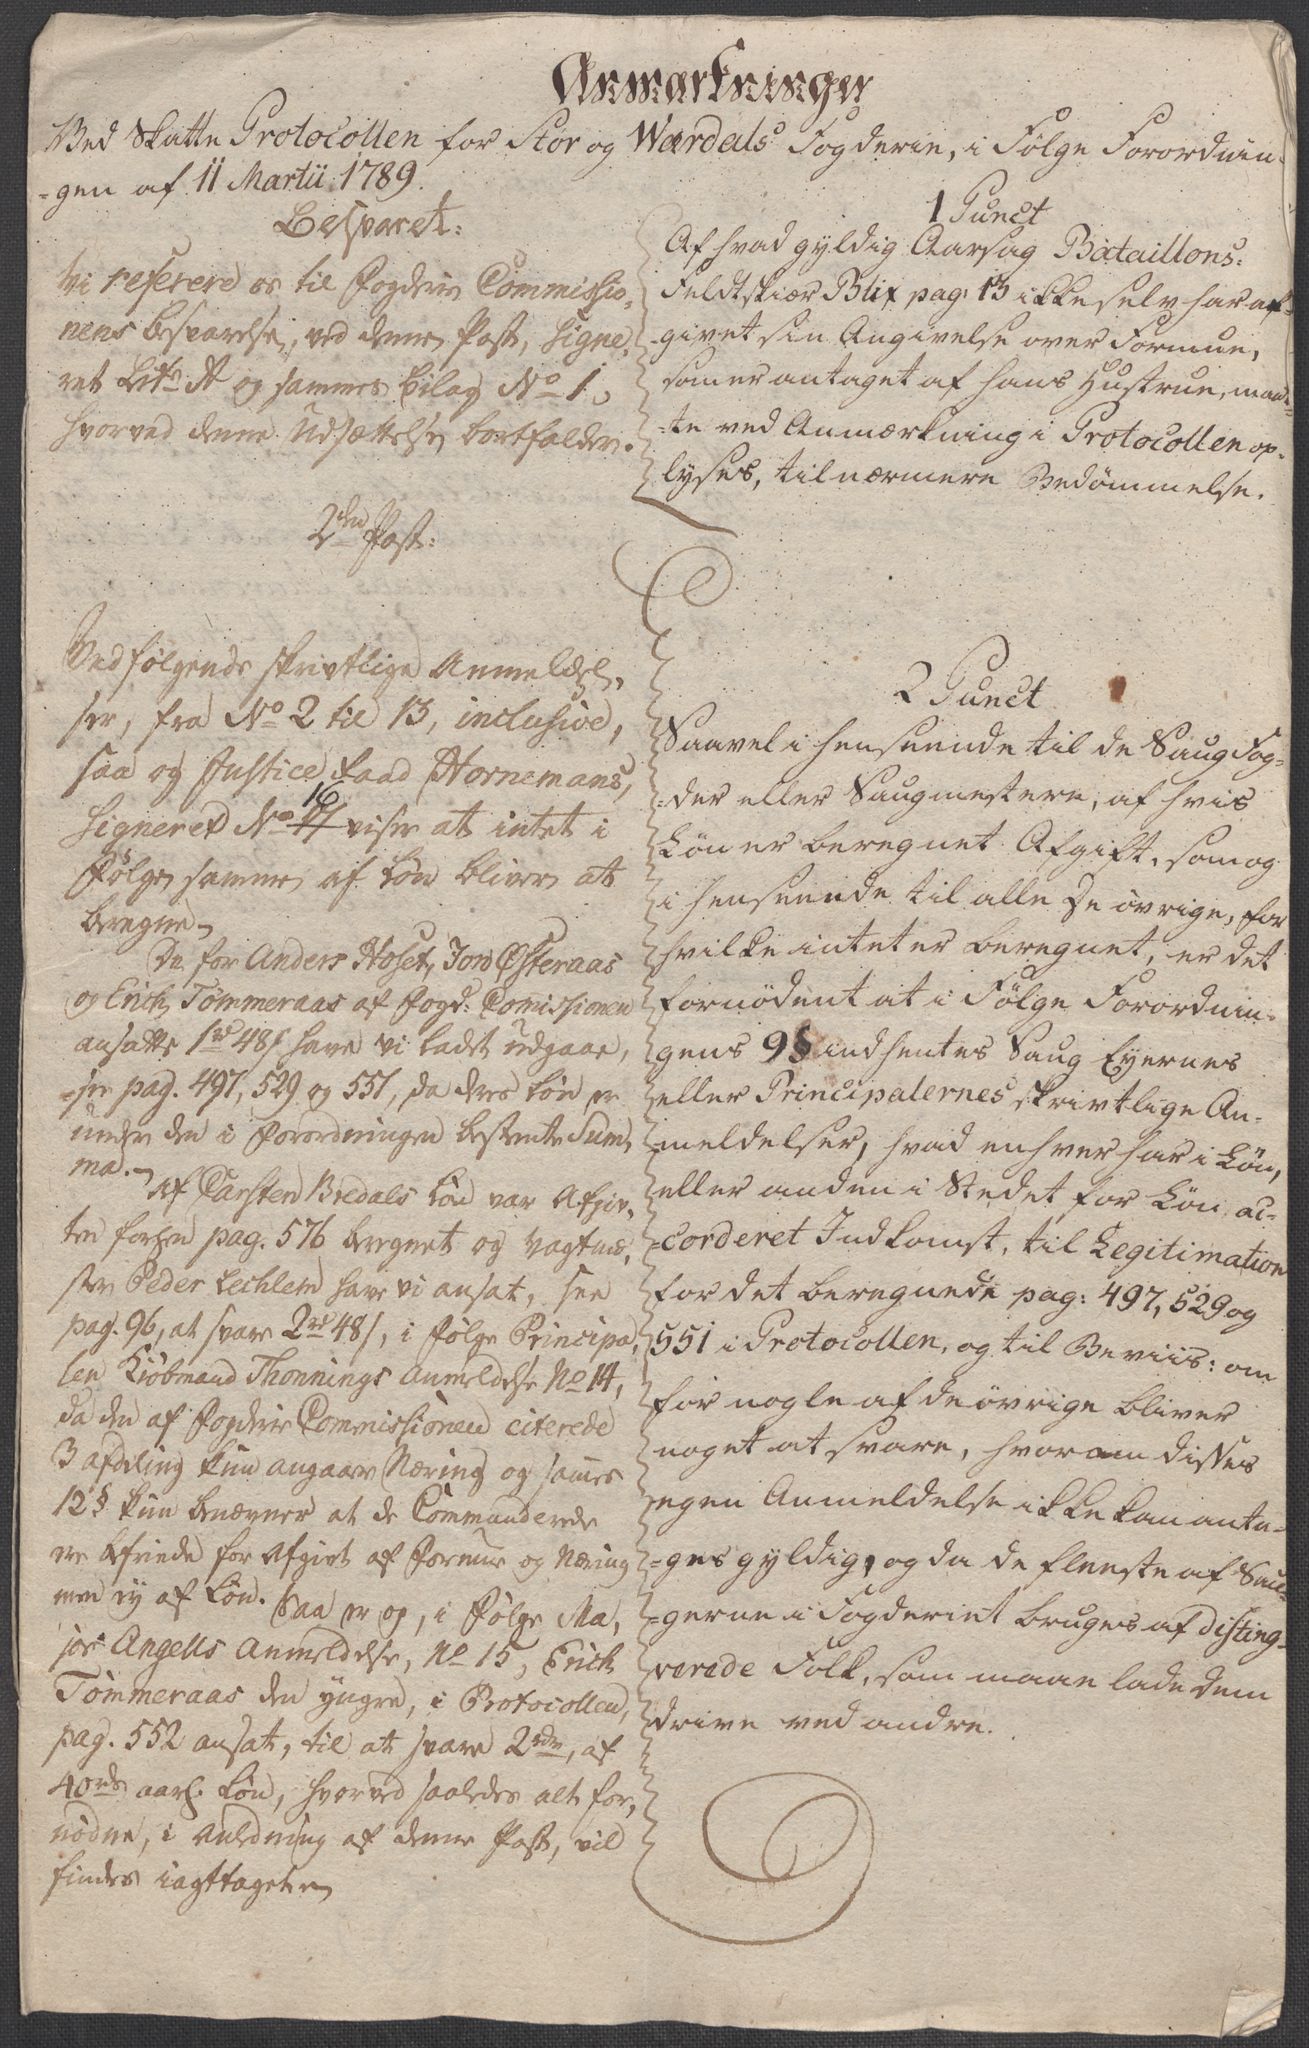 Anmærkninger
Ved Skatte Protocollen for Stör og Wærdals Fogderie, i Følge Forordnin-
-gen af 11 Martii 1789.
Besvaret:
Vi referere os til Fogderie Commissio,
nens Besvarelse, ved denne Post, Signe,
ret Litr A og sammes Bilag No 1,
hvorved denne Udsættelse bortfalder.
2den Post:
Vedfølgende skrivtlige Anmeldel,
ser, fra No 2 til 13, inclusive,
saa og Justice Raad Hornemans,
Signeret No 16 viser at intet i
Følge samme af Løn bliver at
beregne.
De for Anders Hoset, Jon Østeraas
og Erich Tömmeraas af Fogd: Comissionen
ansatte 1rd 48s have vi ladet udgaae,
see pag. 497, 529 og 551, da deres Løn er
under den i Forordningen bestemte Sum,
ma.
Af Carsten Bredals Løn var Afgiv,
ten forhen pag. 576 beregnet og Vagtme,
ster Peder Lechlem have vi ansat, see
pag. 96, at svare 2rd 48s, i Følge Principa,
len Kiöbmand Thonnings Anmeldelse No 14,
da den af Fogderie Commissionen citerede
3 afdeling kun angaaer Næring og sammes
12 § kun benævner at de Commanderede
ere befriede for Afgivt af Formue og Næring
men ey af Løn. Saa er og, i Følge Ma,
jor Angells Anmeldelse, No 15, Erich
Tömmeraas den yngre, i Protocollen,
pag. 552 ansat, til at svare 2rdr, af
40rd aarl. Løn, hvorved saaledes alt for,
nödne, i Anledning af denne Post, vil
findes iagttaget.
1 Punct
Af hvad gyldig Aarsag Bataillons-
Feldtskiær Blix pag: 13 ikke selv har af-
-givet sin Angivelse over Formue,
som er antaget af hans Hustrue, maat-
-te ved Anmærkning i Protocollen op-
lyses, til nærmere Bedömmelse.
2 Punct
Saavel i henseende til de Saug Fog-
-der eller Saugmestere, af hvis
Løn er beregnet Afgift, som og
i henseende til alle de øvrige, for
hvilke intet er beregnet, er det
fornödent at i Følge Forordnin-
gens 9 § indhentes Saug Eyernes
eller Principalernes skrivtlige An-
meldelser, hvad enhver har i Løn,
eller anden i Stedet for Løn, ac-
-corderet Indkomst, til Legitimation
for det beregnede pag: 497, 529 og
551 i Protocollen, og til Beviis: om
for nogle af de øvrige bliver
noget at svare, hvorom disses
egen Anmeldelse ikke kan anta-
-ges gyldig, og da de fleeste af Sau-
-gerne i Fogderiet bruges af disting-
verede Folk, som maae lade dem
drive ved andre.